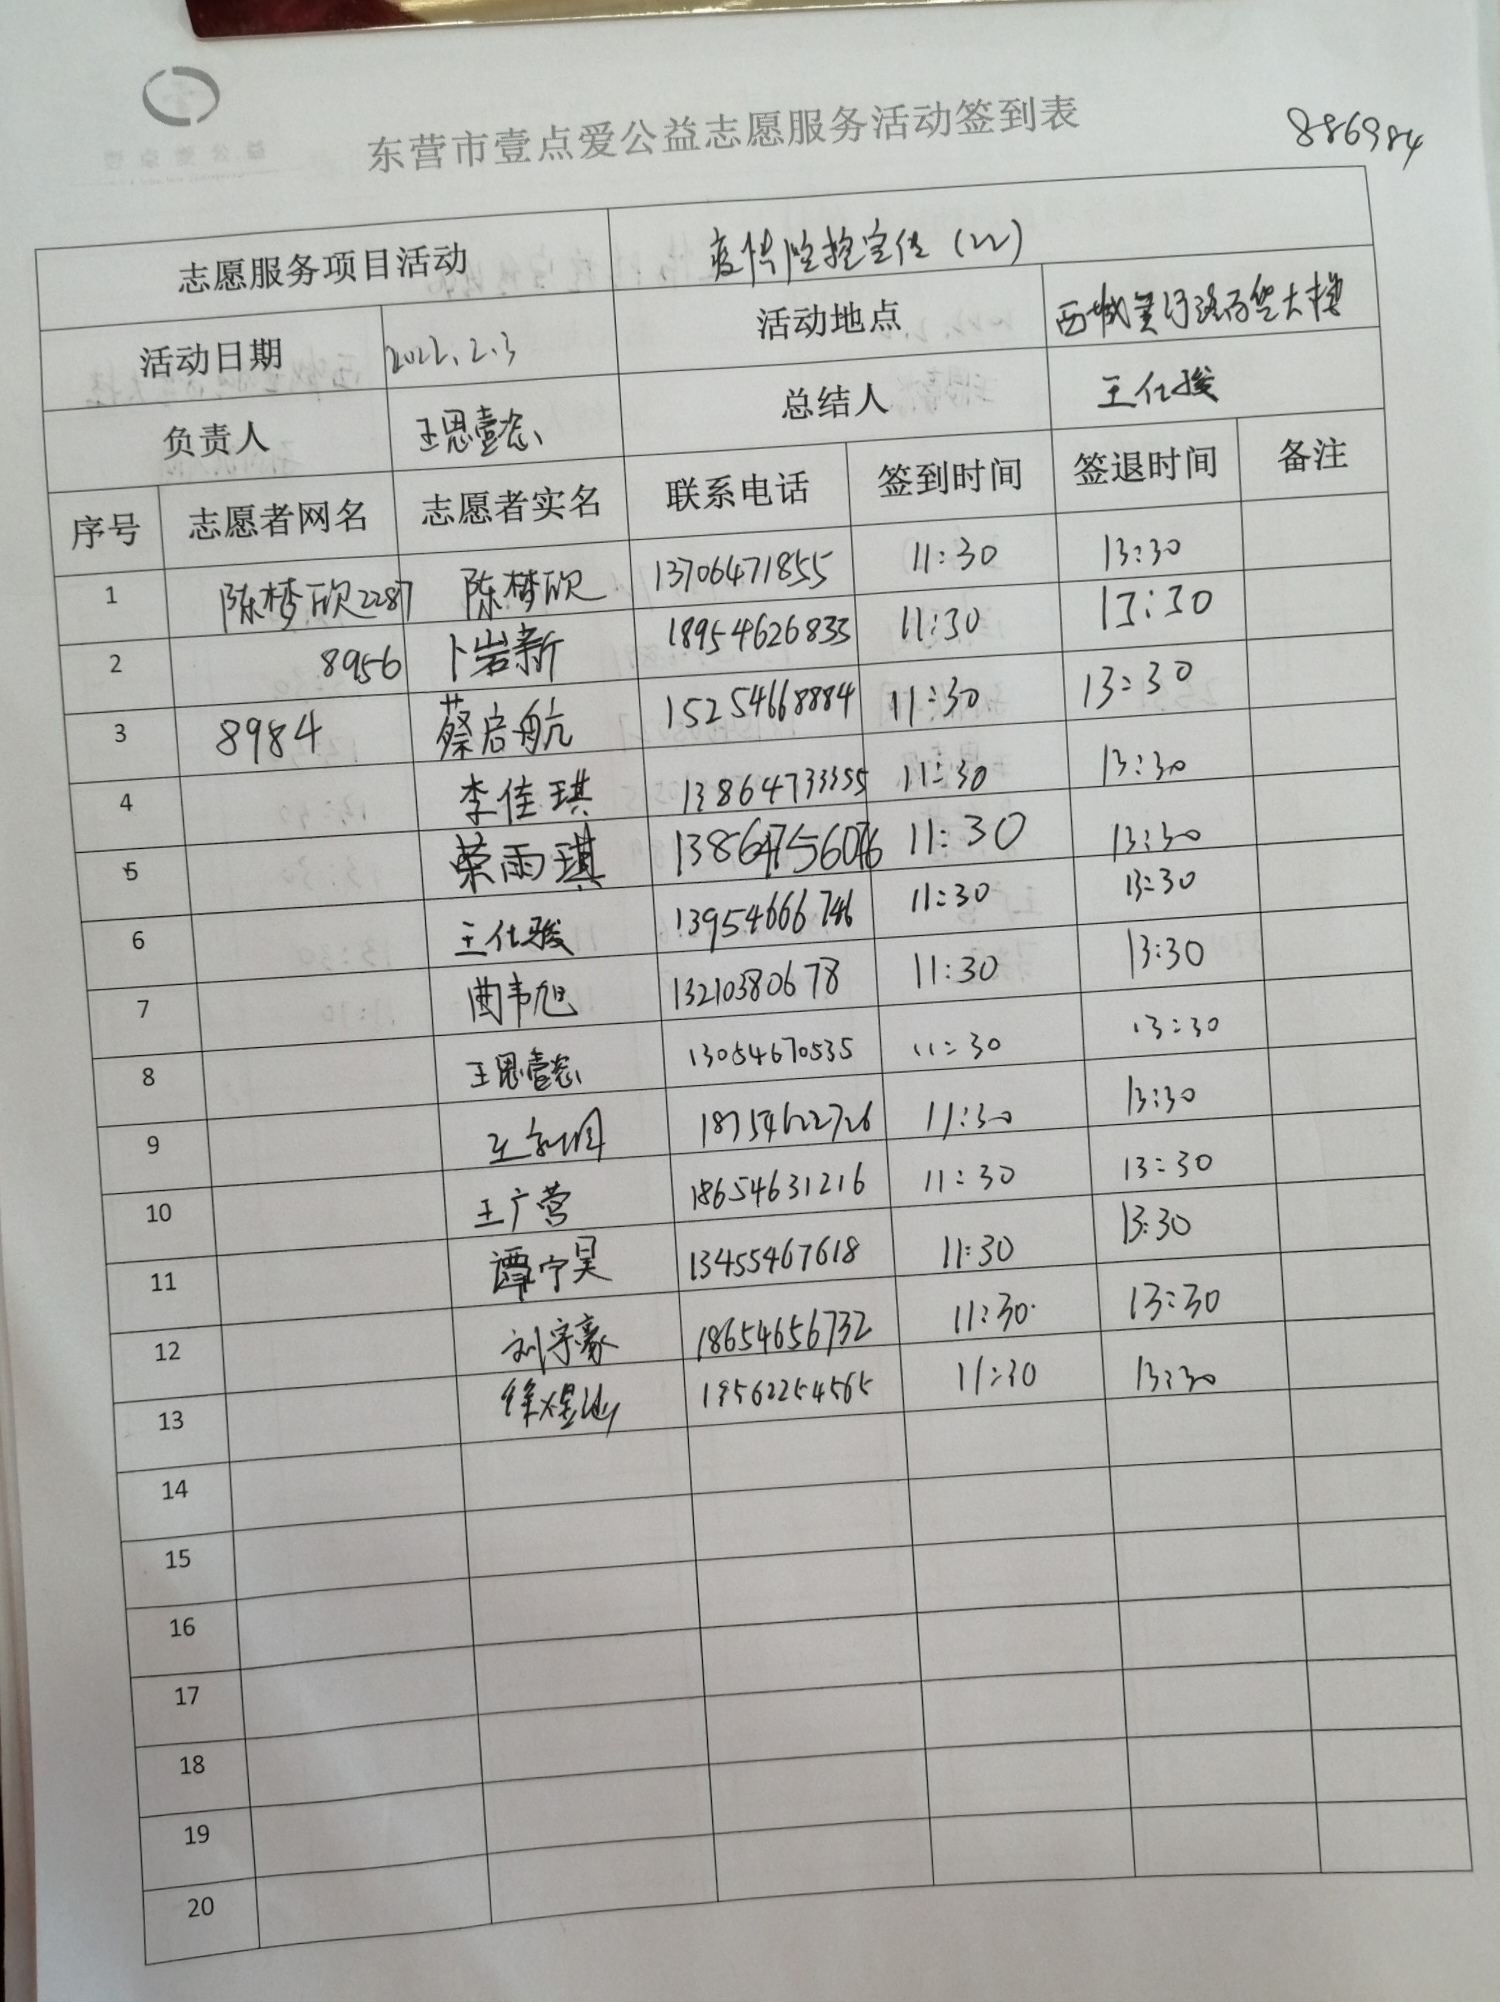 东营市壹点爱公益志愿服务活动签到表
886984
志愿服务项目活动 疫情防控宣传（22）
活动日期 2022.2.3 活动地点 西城黄河路百货大楼
负责人 王思懿 总结人 王仕骏
序号 志愿者网名 志愿者实名 联系电话 签到时间 签退时间 备注
1 陈梦欣2287 陈梦欣 13706471855 11:30 13:30
2 8956 卜岩新 18954626833 11:30 13:30
3 8984 蔡启航 15254668884 11:30 13:30
4 李佳琪 13864733355 11:30 13:30
5 荣雨琪 13864756076 11:30 13:30
6 王仕骏 13954666746 11:30 13:30
7 曲韦旭 13210380678 11:30 13:30
8 王思懿 13054670535 11:30 13:30
9 18754622726 11:30 13:30
10 王广营 18654631216 11:30 13:30
11 谭宁昊 13455467618 11:30 13:30
12 刘宇豪 18654656732 11:30 13:30
13 19562254565 11:30 13:30
14
15
16
17
18
19
20